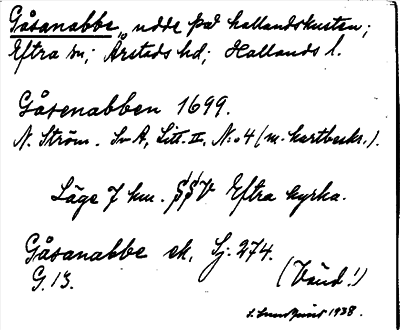 Gåsanabbe, udde på hallandskusten;
Eftra sn; Årstads hd; Hallands l.
Gåsenabben 1699.
N. Ström. Sv A, Litt. II, N:o 4 (m. kartbeskr.).
Läge 7 km. SSV Eftra kyrka.
Gåsanabbe ek. Sj. 274.
G. 13.
(Vänd!)
1938.